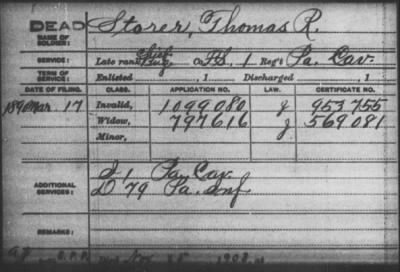 DEAD
NAME OF SOLDIER: Storer, Thomas R.
SERVICE: Late rank Chief Bug, Co. FS, 1 Reg't Pa. Cav.
TERM OF SERVICE: Enlisted , 1 Discharged , 1
DATE OF FILING. CLASS. APPLICATION NO. LAW. CERTIFICATE NO.
1890 Mar. 17 Invalid, 1099080 J 953755
Widow, 797616 J 569081
Minor,
ADDITIONAL SERVICES: I 1 Pa. Cav.
D 79 Pa. Inf.
REMARKS:
Nov 1908